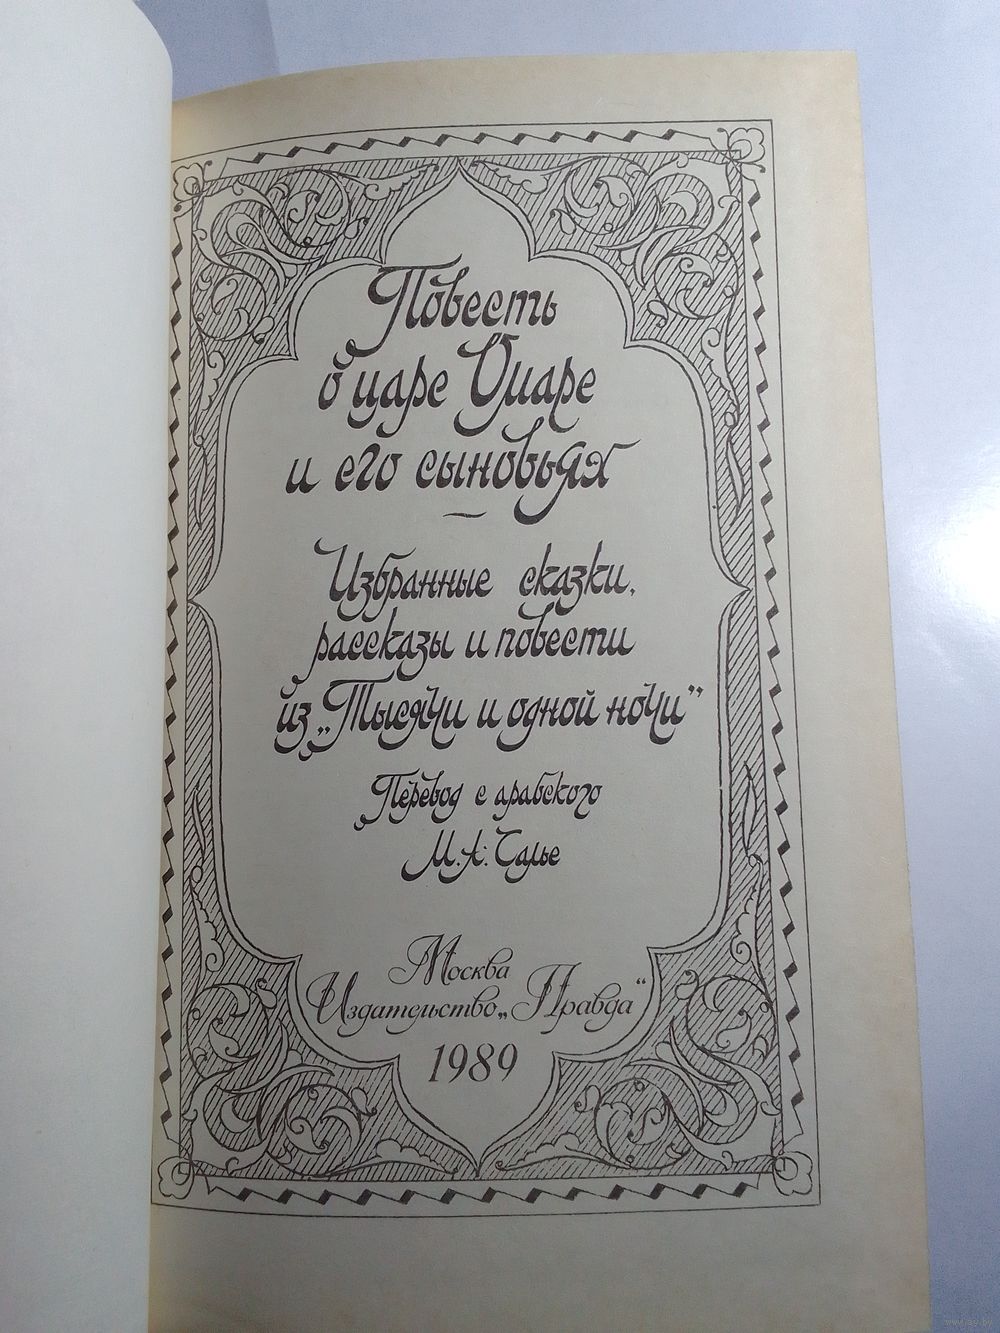 Повесть
о царе Омаре
и его сыновьях
Избранные сказки,
рассказы и повести
из „Тысячи и одной ночи"
Перевод с арабского
М. А. Салье
Москва
Издательство „Правда"
1989
www.ay.by